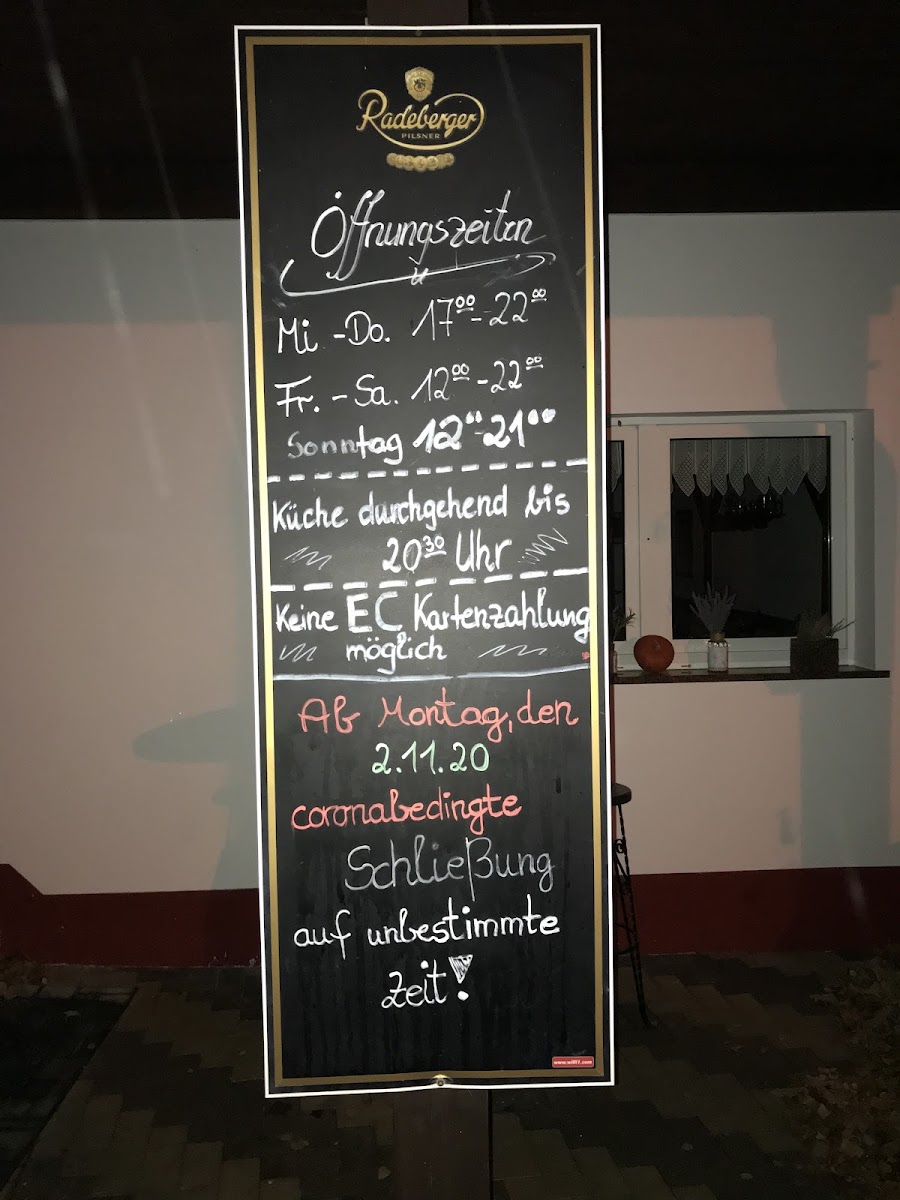 Radeberger
PILSNER
Öffnungszeiten
Mi - Do. 17⁰⁰ - 22⁰⁰
Fr. - Sa. 12⁰⁰ - 22⁰⁰
Sonntag 12⁰⁰ - 21⁰⁰
Küche durchgehend bis
20³⁰ Uhr
Keine EC Kartenzahlung
möglich
Ab Montag, den
2.11.20
coronabedingte
Schließung
auf unbestimmte
Zeit!